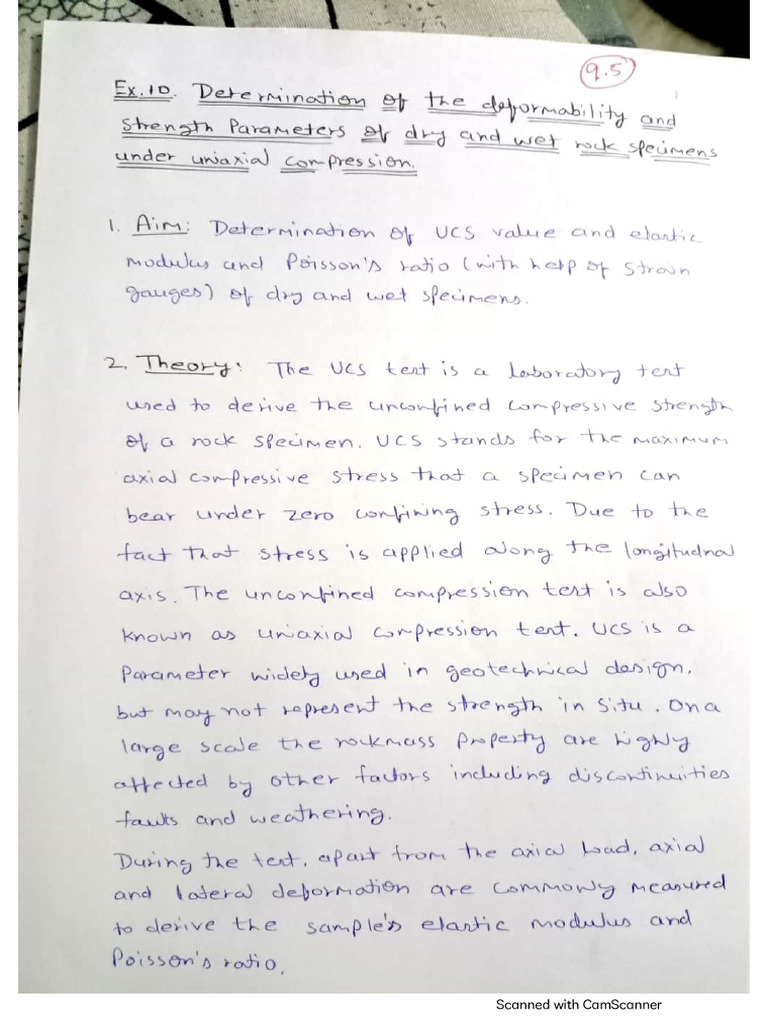 9.5
Ex.10. Determination of the deformability and
Strength Parameters of dry and wet rock specimens
under uniaxial compression.
1. Aim: Determination of UCS value and elastic
modulus and Poisson's ratio (with help of Strain
gauges) of dry and wet specimens.
2. Theory: The UCS test is a laboratory test
used to derive the unconfined compressive strength
of a rock specimen. UCS stands for the maximum
axial compressive stress that a specimen can
bear under zero confining stress. Due to the
fact that stress is applied along the longitudnal
axis. The unconfined compression test is also
known as uniaxial compression test. UCS is a
Parameter widely used in geotechnical design,
but may not represent the strength in situ. On a
large scale the rockmass property are highly
affected by other factors including discontinuities
faults and weathering.
During the test, apart from the axial load, axial
and lateral deformation are commonly measured
to derive the sample's elastic modulus and
Poisson's ratio.
Scanned with CamScanner